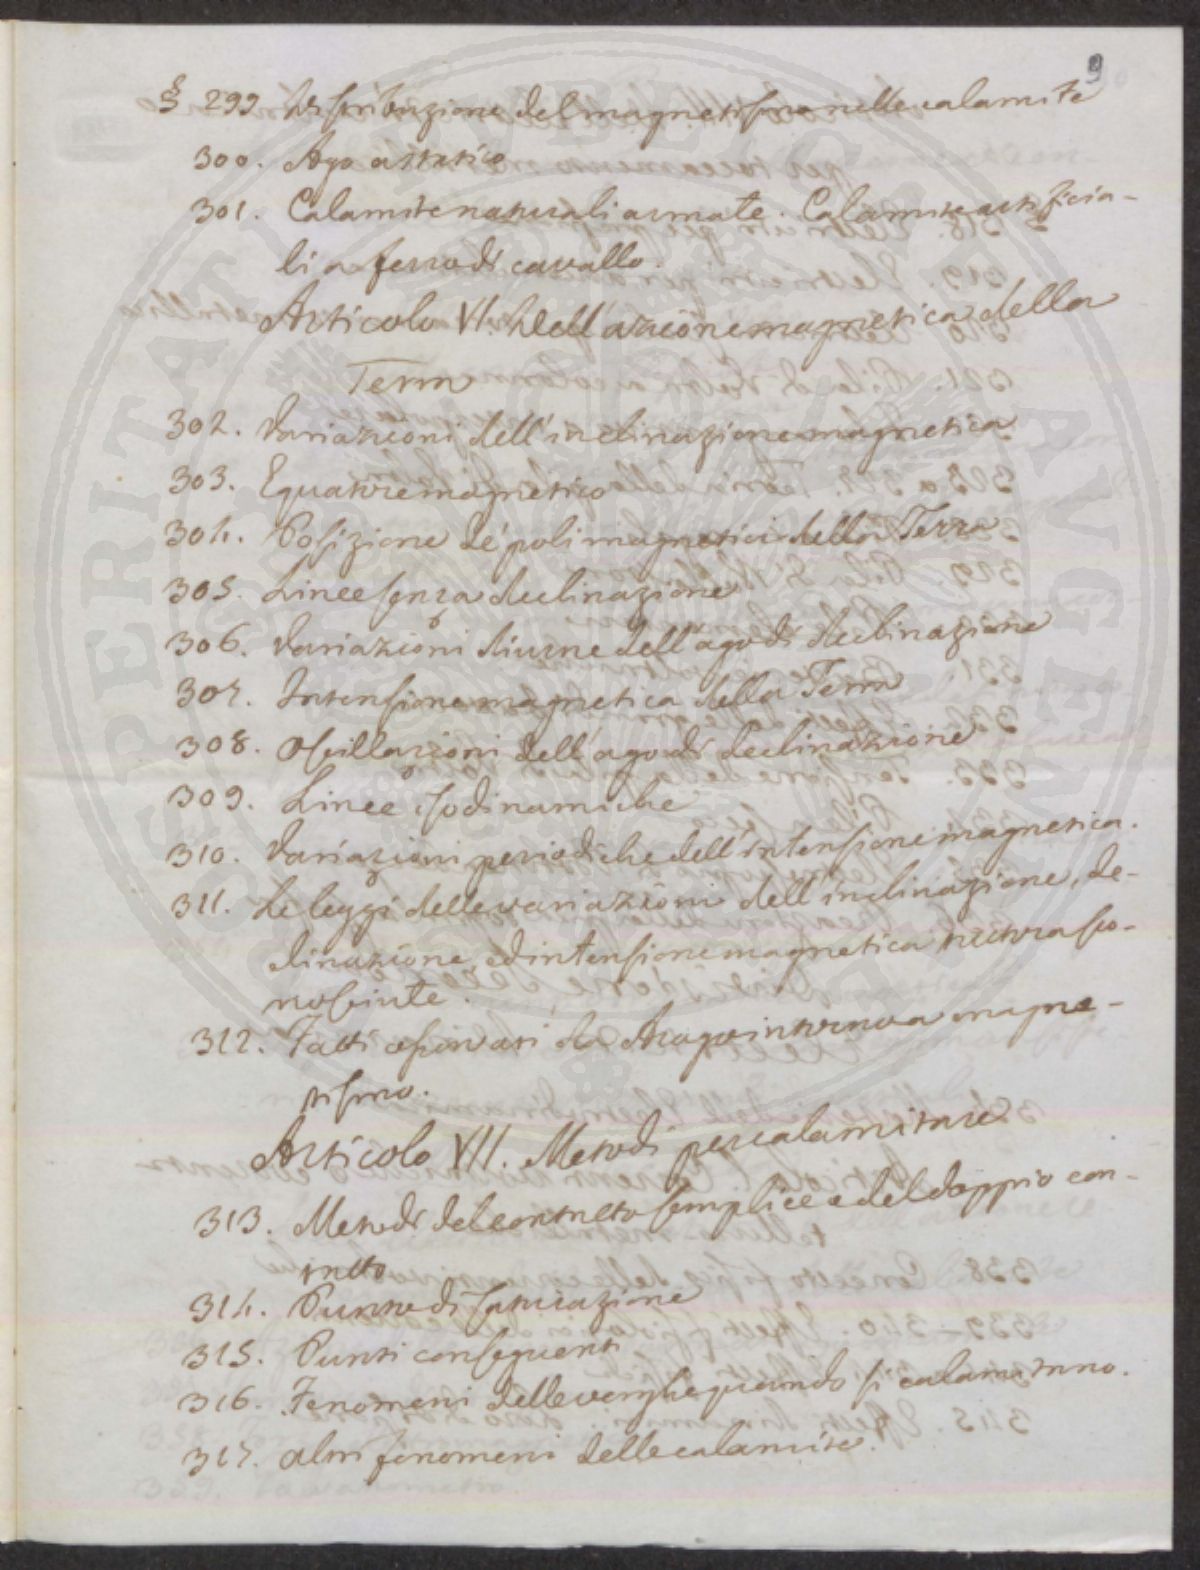 9
§ 299. Distribuzione del magnetismo nelle calamite
300. Ago astatico
301. Calamite naturali armate. Calamite artificia-
li a ferro di cavallo.
Articolo VI. Dell'azione magnetica della
Terra
302. Variazioni dell'inclinazione magnetica
303. Equatore magnetico
304. Posizione de' poli magnetici della Terra
305. Linee senza declinazione
306. Variazioni diurne dell'ago di declinazione
307. Intensione magnetica della Terra
308. Oscillazioni dell'ago di declinazione
309. Linee isodinamiche
310. Variazioni periodiche dell'intensione magnetica.
311. Le leggi delle variazioni dell'inclinazione, de-
clinazione, ed intensione magnetica tuttora sco-
nosciute.
312. Fatti osservati da Arago intorno a magne-
tismo.
Articolo VII. Metodi per calamitare
313. Metodi del contatto semplice e del doppio con-
tatto
314. Punto di saturazione
315. Punti conseguenti
316. Fenomeni delle verghe quando si calamitano.
317. Altri fenomeni delle calamite.